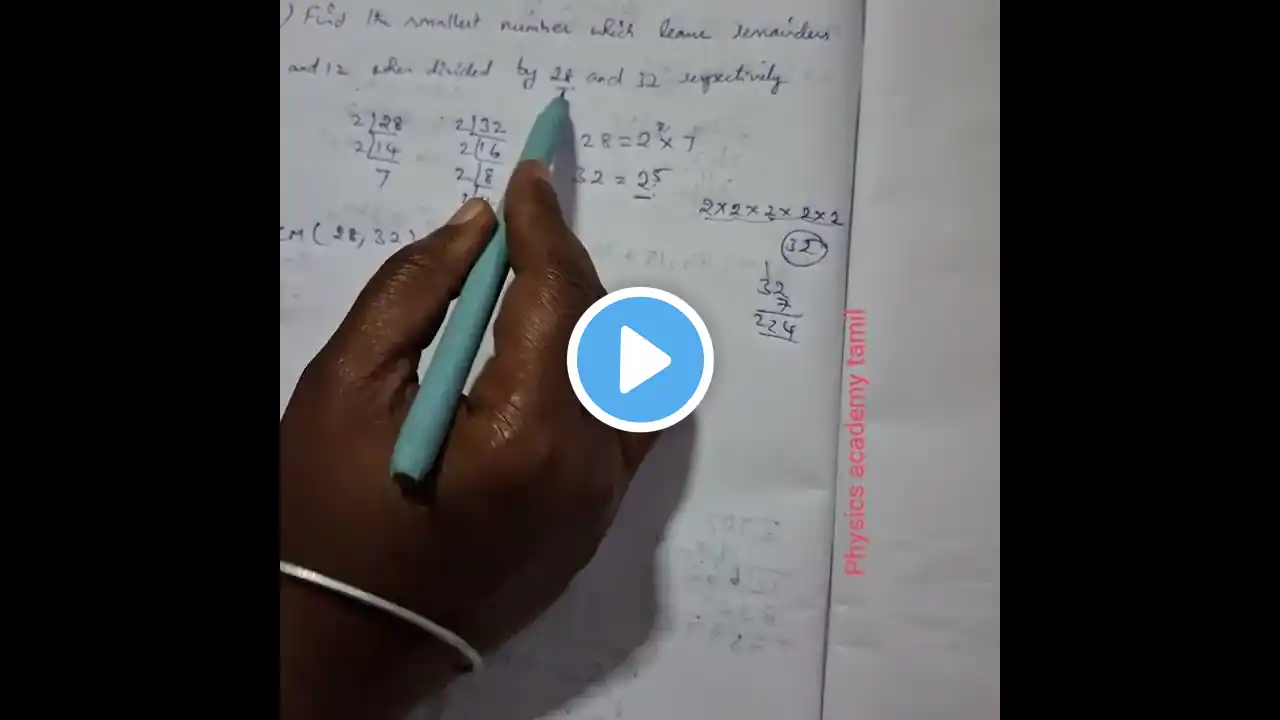 ) Find the smallest number which leave remainders
and 12 when divided by 28 and 32 respectively
2 28
2 14
7
2 32
2 16
2 8
28 = 2² × 7
32 = 2⁵
(28, 32)
2×2×2×2×2
32
1
32
7
224
Physics academy tamil